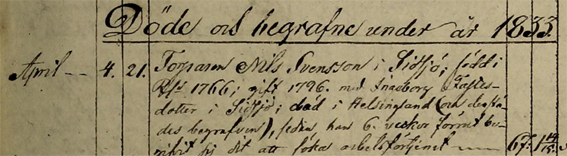 Döde och begrafne under år 1833
April - - 4. 21. Torparen Nils Svensson i Sidsjö, född i
1766; gift 1796. med Ingeborg
dotter i Sidsjö; död i Helsingland (och der
des begrafven), sedan han 6. veckor förut be-
sig dit att söka arbetsförtjenst 67.